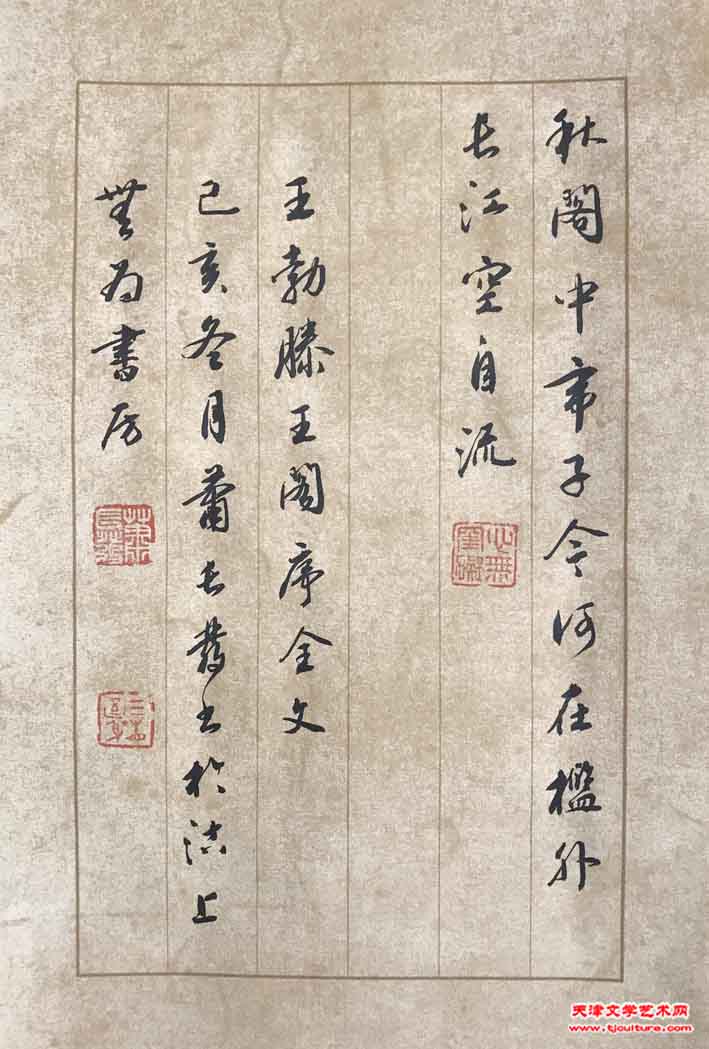 秋閣中帝子今何在檻外
長江空自流
王勃滕王閣序全文
己亥冬月蕭長發書於沽上
無為書房
天津文学艺术网
www.tjculture.com